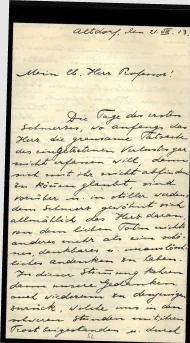 Altdorf, den 21. VII. 13.
Mein lb. Herr Professor!
Die Tage des ersten
Schmerzes, wo anfangs das
Herz die grausame Tatsache
des eingetretenen Verlustes gar
nicht erfassen will, denn
sich mit ihr nicht abfinden
zu können glaubt, sind
vorüber u. in stiller
dem Schmerz gewöhnt sich
allmählich das Herz daran,
von dem lieben Toten nicht
anderes mehr als ein
dankbares u.
liebes Andenken zu haben.
In dieser Stimmung kehren
dann unsere Gedanken
auch wiederum zu denjenigen
zurück, welche uns in den
schweren Stunden
Trost u. durch